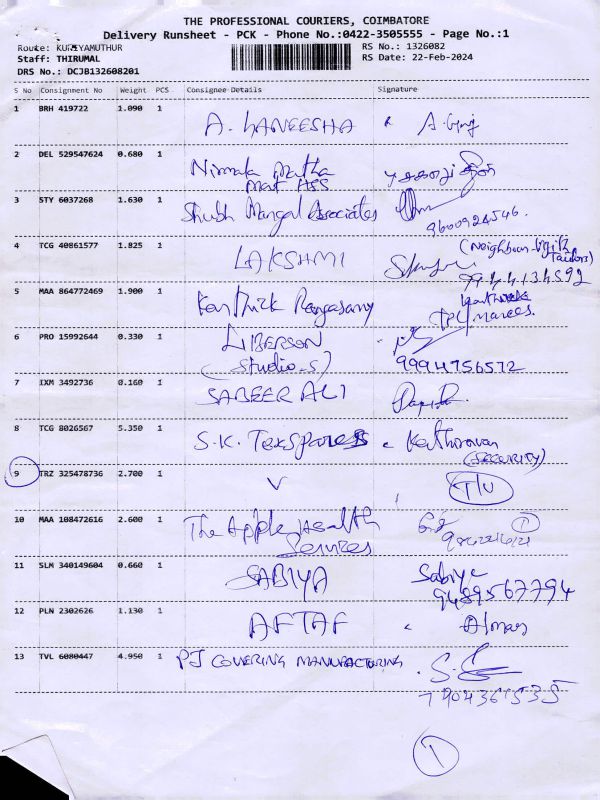 THE PROFESSIONAL COURIERS, COIMBATORE
Delivery Runsheet - PCK - Phone No.:0422-3505555 - Page No.:1
Route: KUNIYAMUTHUR
RS No.: 1326082
Staff: THIRUMAL
RS Date: 22-Feb-2024
DRS No.: DCJB132608201
S No Consignment No Weight PCS Consignee Details Signature
1 BRH 419722 1.090 1 A. HANEESHA
2 DEL 529547624 0.680 1 Nirmala Matha
Mat HSS
3 STY 6037268 1.630 1 Shubh Mangal Associates
9600924546.
4 TCG 40861577 1.825 1 LAKSHMI (Neighbour
Tailors)
9944134592
5 MAA 864772469 1.900 1 Karthick Rangasamy
6 PRO 15992644 0.330 1 LIBERSON
(Studio-S) 9994756572
7 IXM 3492736 0.160 1 SABEER ALI
8 TCG 8026567 5.350 1 S.K. Texspares Kathiravan
(SECURITY)
9 TRZ 325478736 2.700 1
10 MAA 108472616 2.600 1 The Apple Health
Services
11 SLM 340149604 0.660 1 SABIYA Sabiya
9489567794
12 PLN 2302626 1.130 1 AFTAF
13 TVL 6080447 4.950 1 PJ COVERING MANUFACTURING
7904361535
1